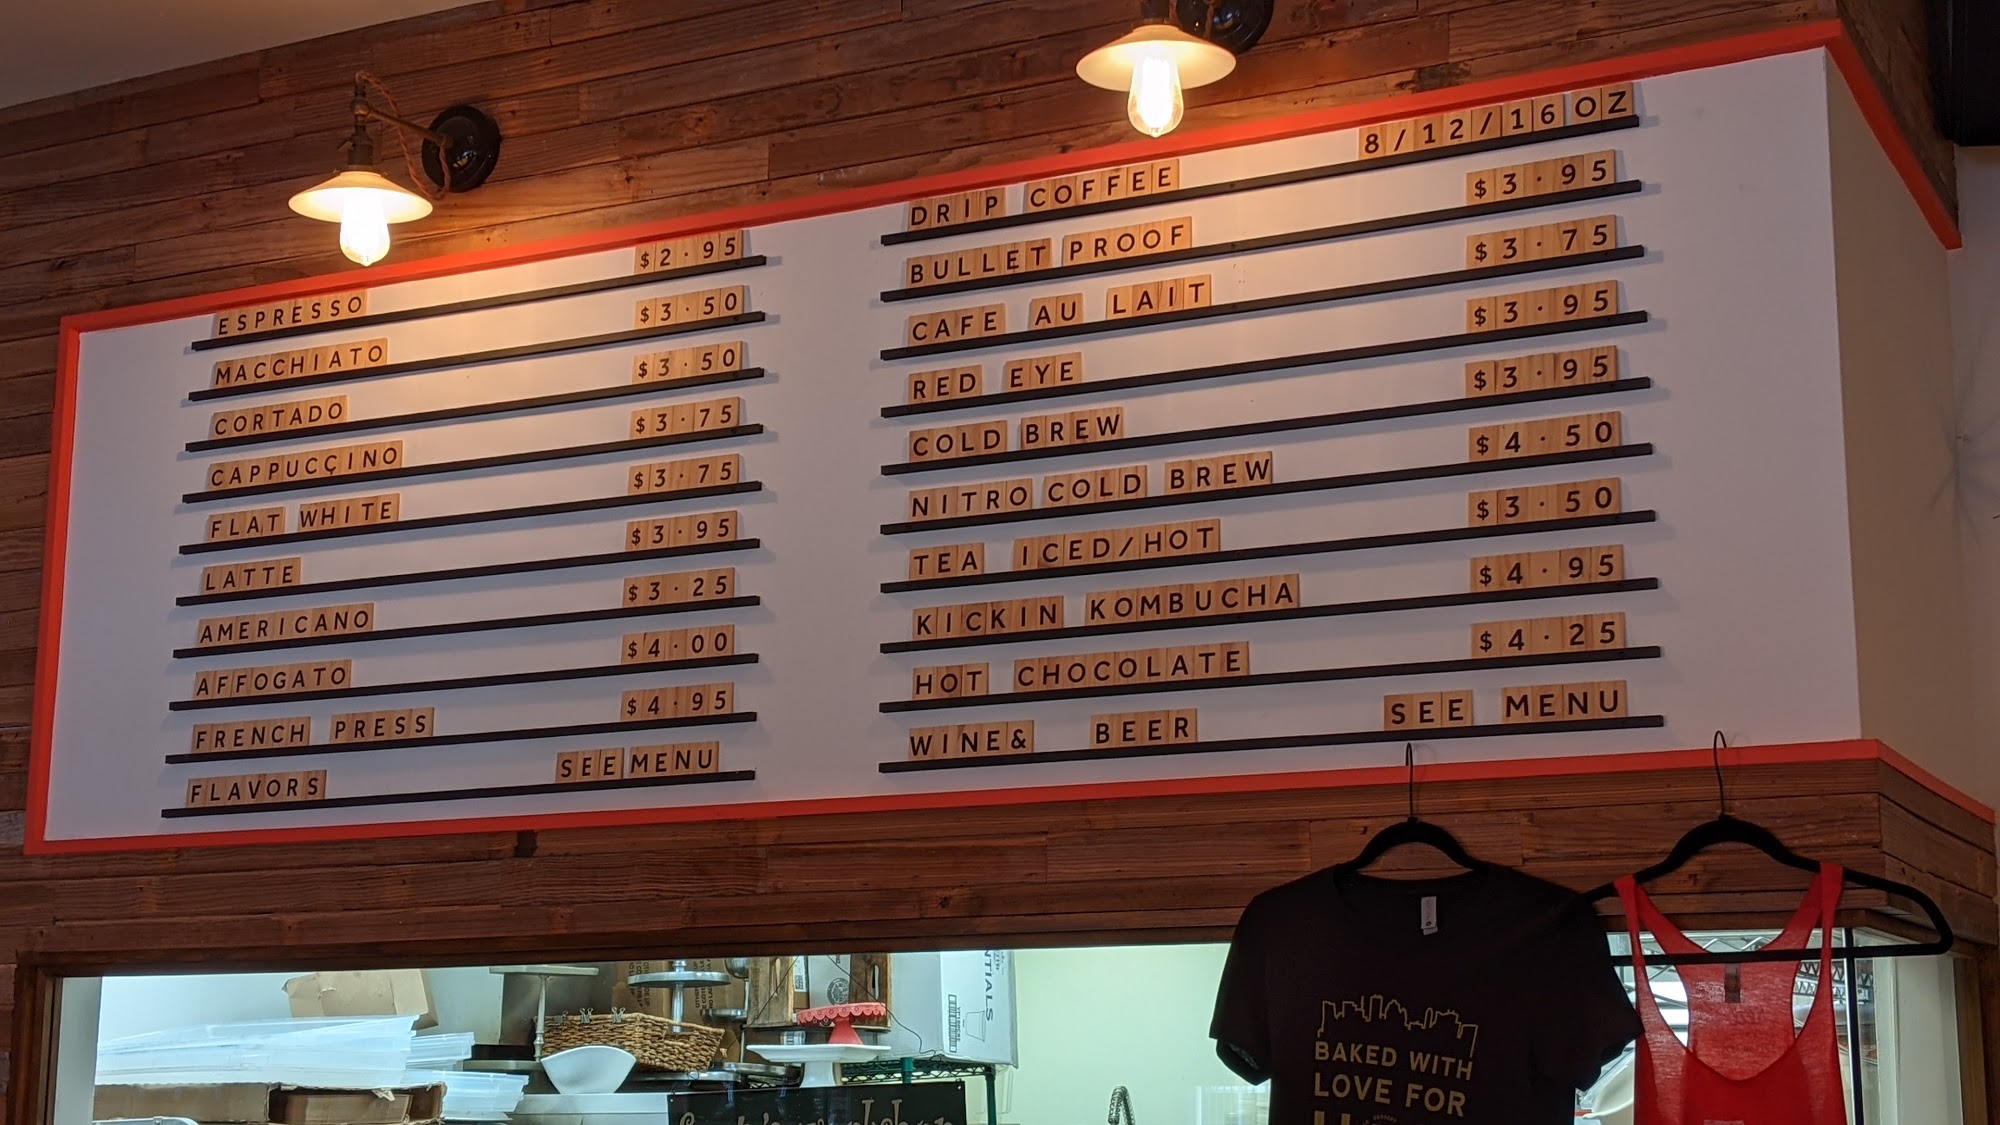 ESPRESSO $2.95
MACCHIATO $3.50
CORTADO $3.50
CAPPUCCINO $3.75
FLAT WHITE $3.75
LATTE $3.95
AMERICANO $3.25
AFFOGATO $4.00
FRENCH PRESS $4.95
FLAVORS SEE MENU
DRIP COFFEE 8/12/16 OZ
BULLET PROOF $3.95
CAFE AU LAIT $3.75
RED EYE $3.95
COLD BREW $3.95
NITRO COLD BREW $4.50
TEA ICED/HOT $3.50
KICKIN KOMBUCHA $4.95
HOT CHOCOLATE $4.25
WINE& BEER SEE MENU
BAKED WITH
LOVE FOR